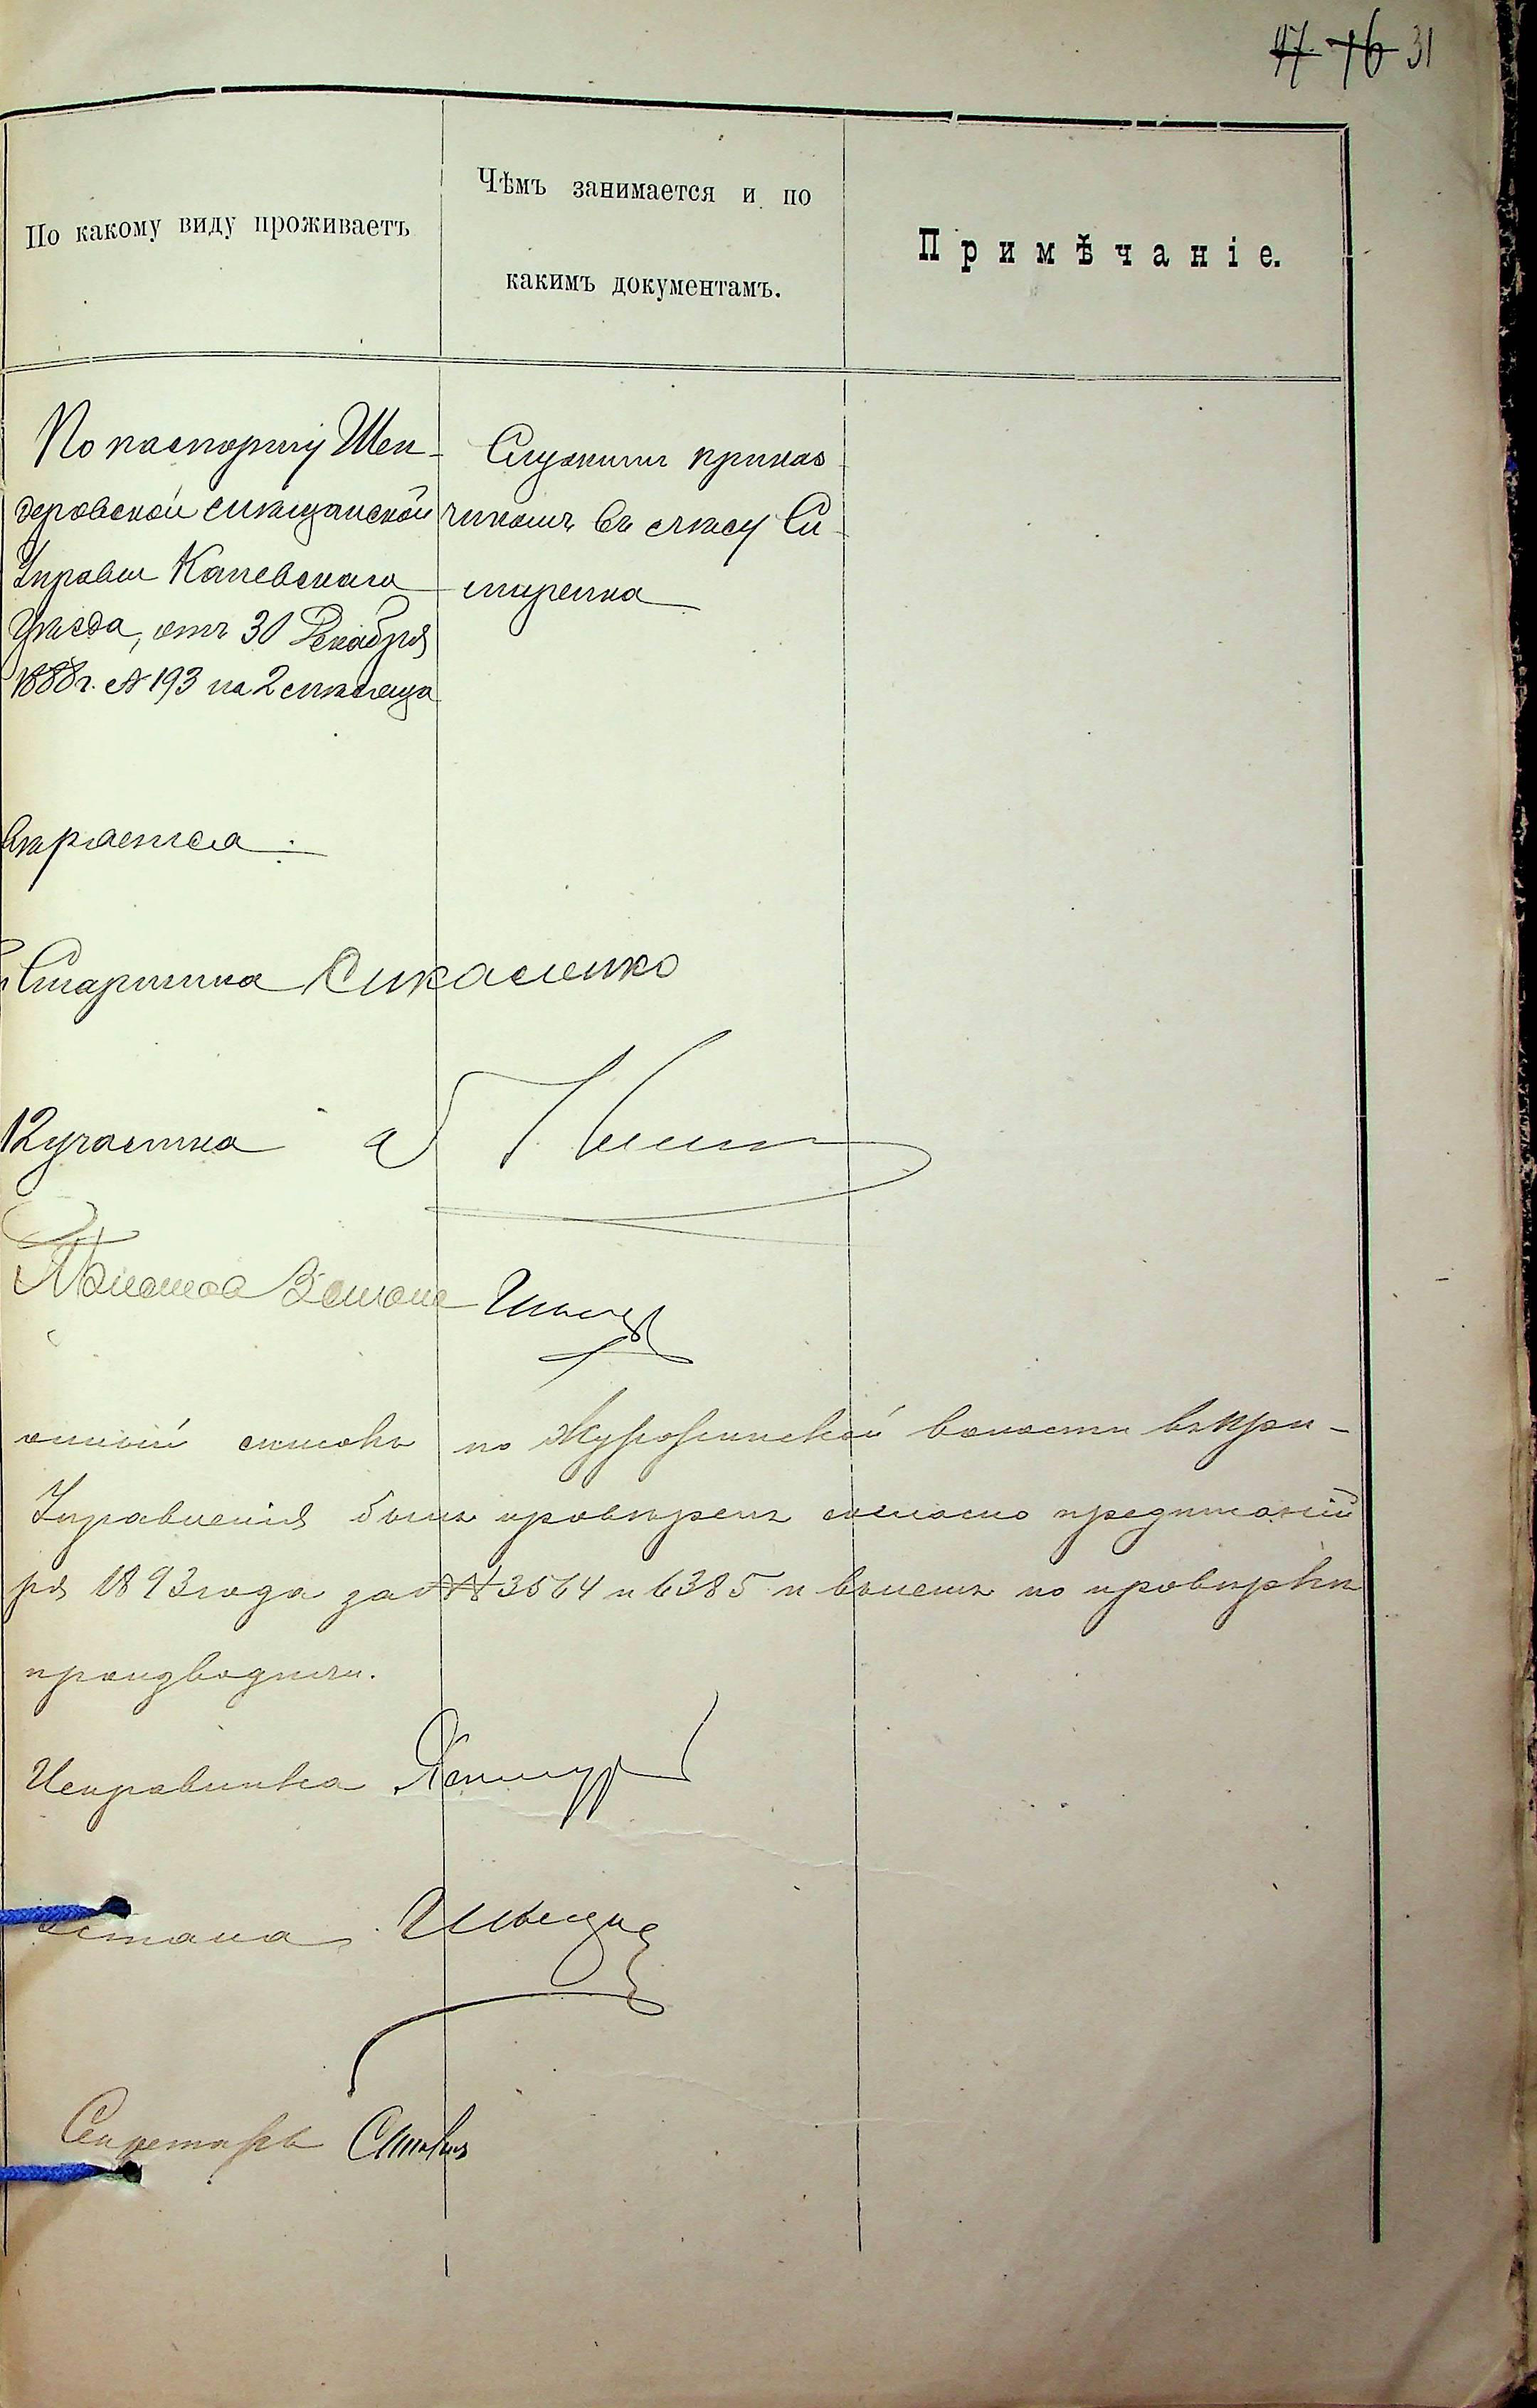 47 76 31
По какому виду проживаетъ
Чѣмъ занимается и по
какимъ документамъ.
Примѣчаніе.
По паспорту Шен-
деровской мѣщанской
Управы Каневскаго
уѣзда, отъ 30 Декабря
1888 г. № 193 на 2 мѣсяца
Служитъ приказ-
чикомъ въ лѣсу Си-
таренка
вѣряется.
Старшина
12 участка
онный списокъ по Журжинской волости въ при-
Управленія былъ провѣренъ согласно предписаній
ря 1893 года за №№ 3564 и 6385 и вѣренъ по провѣркѣ
производили.
Исправника
Стана
Секретарь